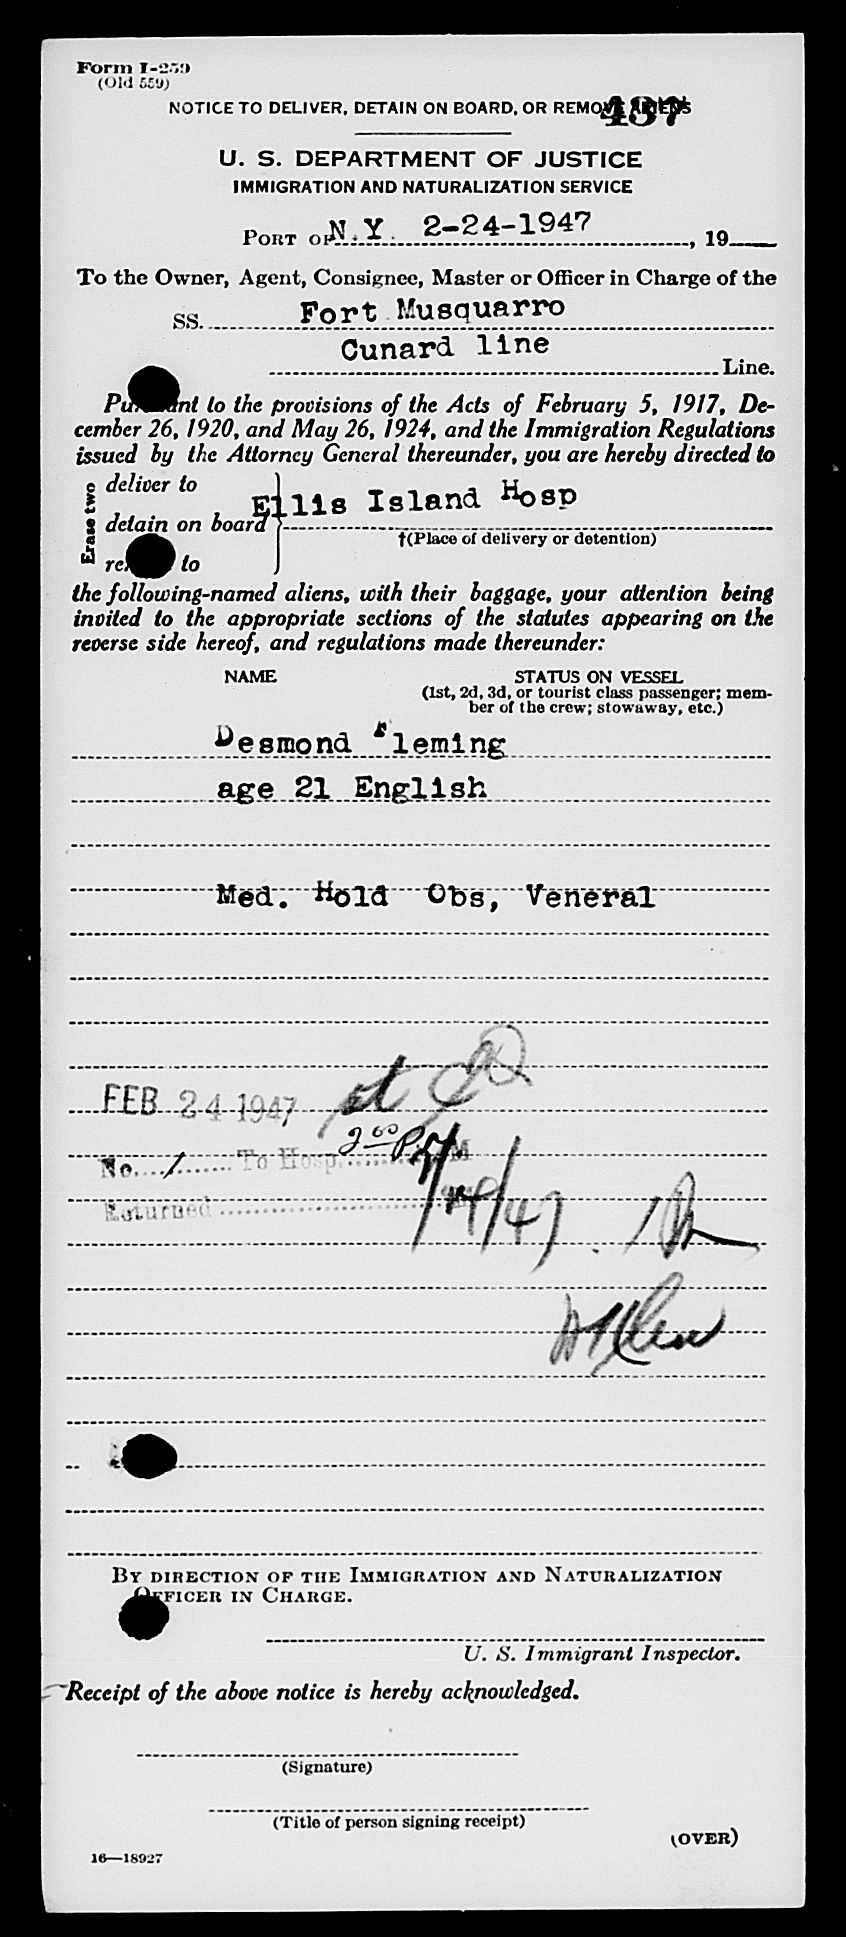 Form I-259
(Old 559)
437
NOTICE TO DELIVER, DETAIN ON BOARD, OR REMOVE ALIENS
U. S. DEPARTMENT OF JUSTICE
IMMIGRATION AND NATURALIZATION SERVICE
PORT OF N.Y. 2-24-1947, 19
To the Owner, Agent, Consignee, Master or Officer in Charge of the
SS. Fort Musquarro
Cunard line Line.
Pu nt to the provisions of the Acts of February 5, 1917, De-
cember 26, 1920, and May 26, 1924, and the Immigration Regulations
issued by the Attorney General thereunder, you are hereby directed to
Erase two
deliver to
detain on board
re to
Ellis Island Hosp
†(Place of delivery or detention)
the following-named aliens, with their baggage, your attention being
invited to the appropriate sections of the statutes appearing on the
reverse side hereof, and regulations made thereunder:
NAME STATUS ON VESSEL
(1st, 2d, 3d, or tourist class passenger; mem-
ber of the crew; stowaway, etc.)
Desmond Fleming
age 21 English
Med. Hold Obs, Veneral
FEB 24 1947
No. 1 To Hosp. 2 00 P M
Returned
BY DIRECTION OF THE IMMIGRATION AND NATURALIZATION
OFFICER IN CHARGE.
U. S. Immigrant Inspector.
Receipt of the above notice is hereby acknowledged.
(Signature)
(Title of person signing receipt)
(OVER)
16—18927